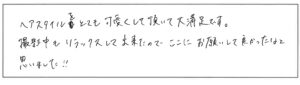 ヘアスタイルとても可愛くして頂いて大満足です。
撮影中もリラックスして出来たので、ここにお願いして良かったなと
思いました!!